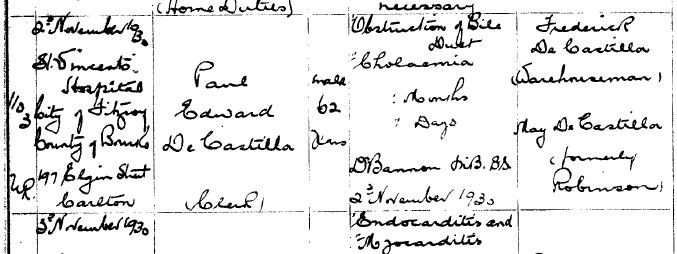 (Home Duties)
necessary
2d November 1930
St. Vincents'
Hospital
City of Fitzroy
County of Bourke
197 Elgin Street
Carlton
Paul
Edward
De Castilla
(Clerk)
male
62
Years
Obstruction of Bile
Duct
Cholaemia
? Months
? Days
Dr Bannon M.B. B.S.
2d November 1930
Frederick
De Castilla
(Warehouseman)
May De Castilla
(formerly
Robinson)
3d November 1930
Endocarditis and
Myocarditis